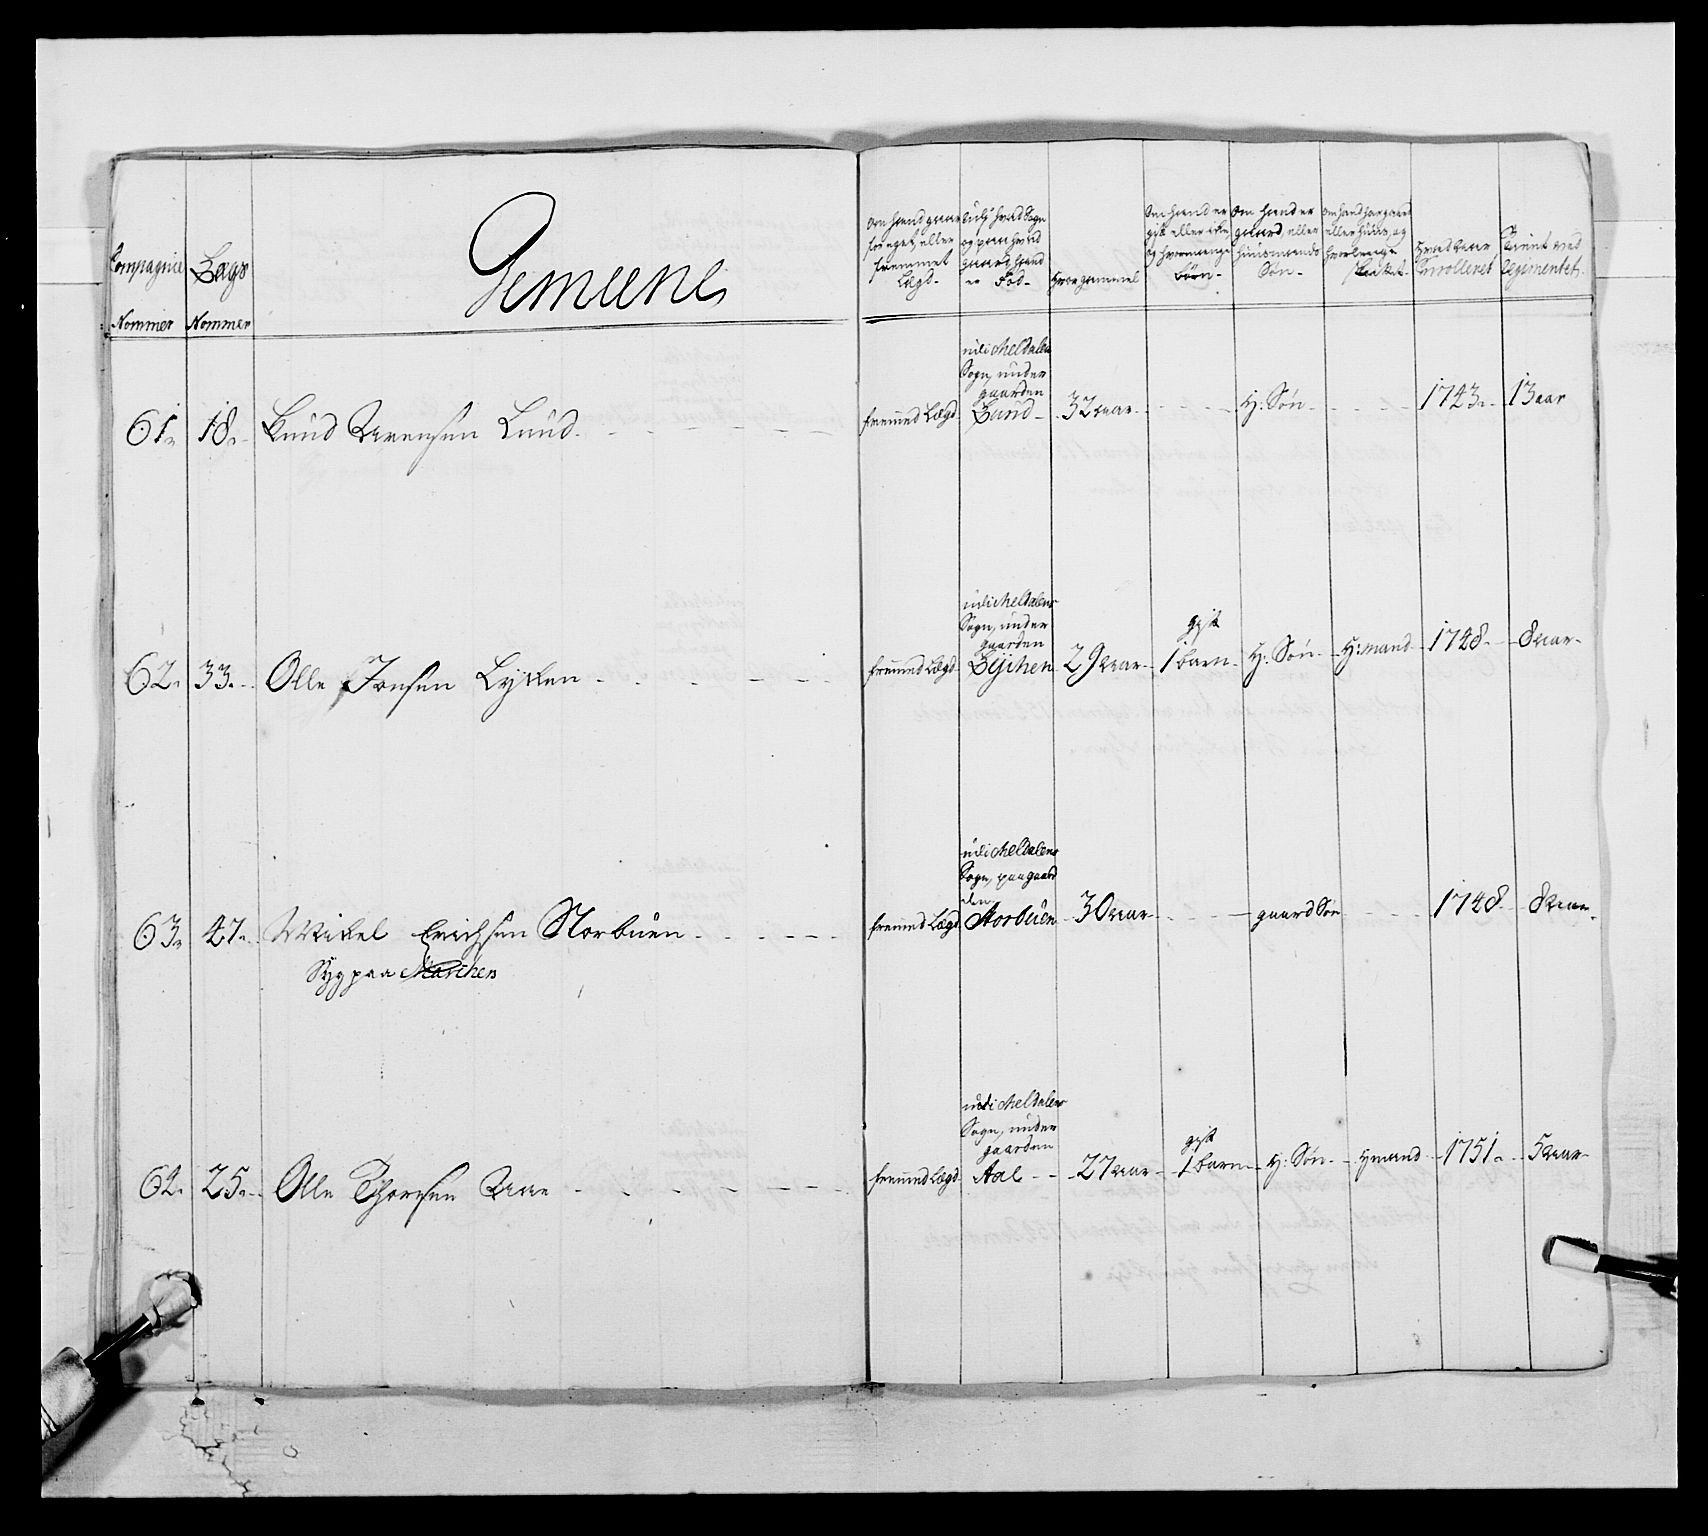 Compagnie
Nommer
Lægs
Nommer
Gemeene
om hand er
for eget, eller
fremmet
Lægd-
udj hvad Sogn
og paa hvad
gaard hand
er Fød-
Hvor gammel
Om hand er
gift eller ikke
og hvor mange
børn-
Om hand er
gaard, eller
huusmands
Søn-
om hand har gaard
eller huus, og
hvad aar
Enrolleret
Tient ved
Regimentet
61. 18. Knud Arensen Lund.
fremmed Lægd
udi Meldalens
Sogn, under
gaarden
Lund-
32 aar
H: Søn
1743. 13 aar
62. 33. Olle Jonsen Lykken
fremmed Lægd
udi Meldalens
Sogn, under
gaarden
Lychen
29 aar
gift
1 barn
H: Søn
H: mand
1748. 8 aar
63. 47. Mikel Erichsen Storbuen
Syg paa Marchen
fremmed Lægd
udi Meldalens
Sogn, paa gaard
den
Storbuen
30 aar
gaard Søn
1748 8 aar
62. 25. Olle Thoresen Aae
fremmed Lægd
udi Meldalens
Sogn, under
gaarden
Aae
27 aar
gift
1 barn
H: Søn
Hmand
1751. 5 aar